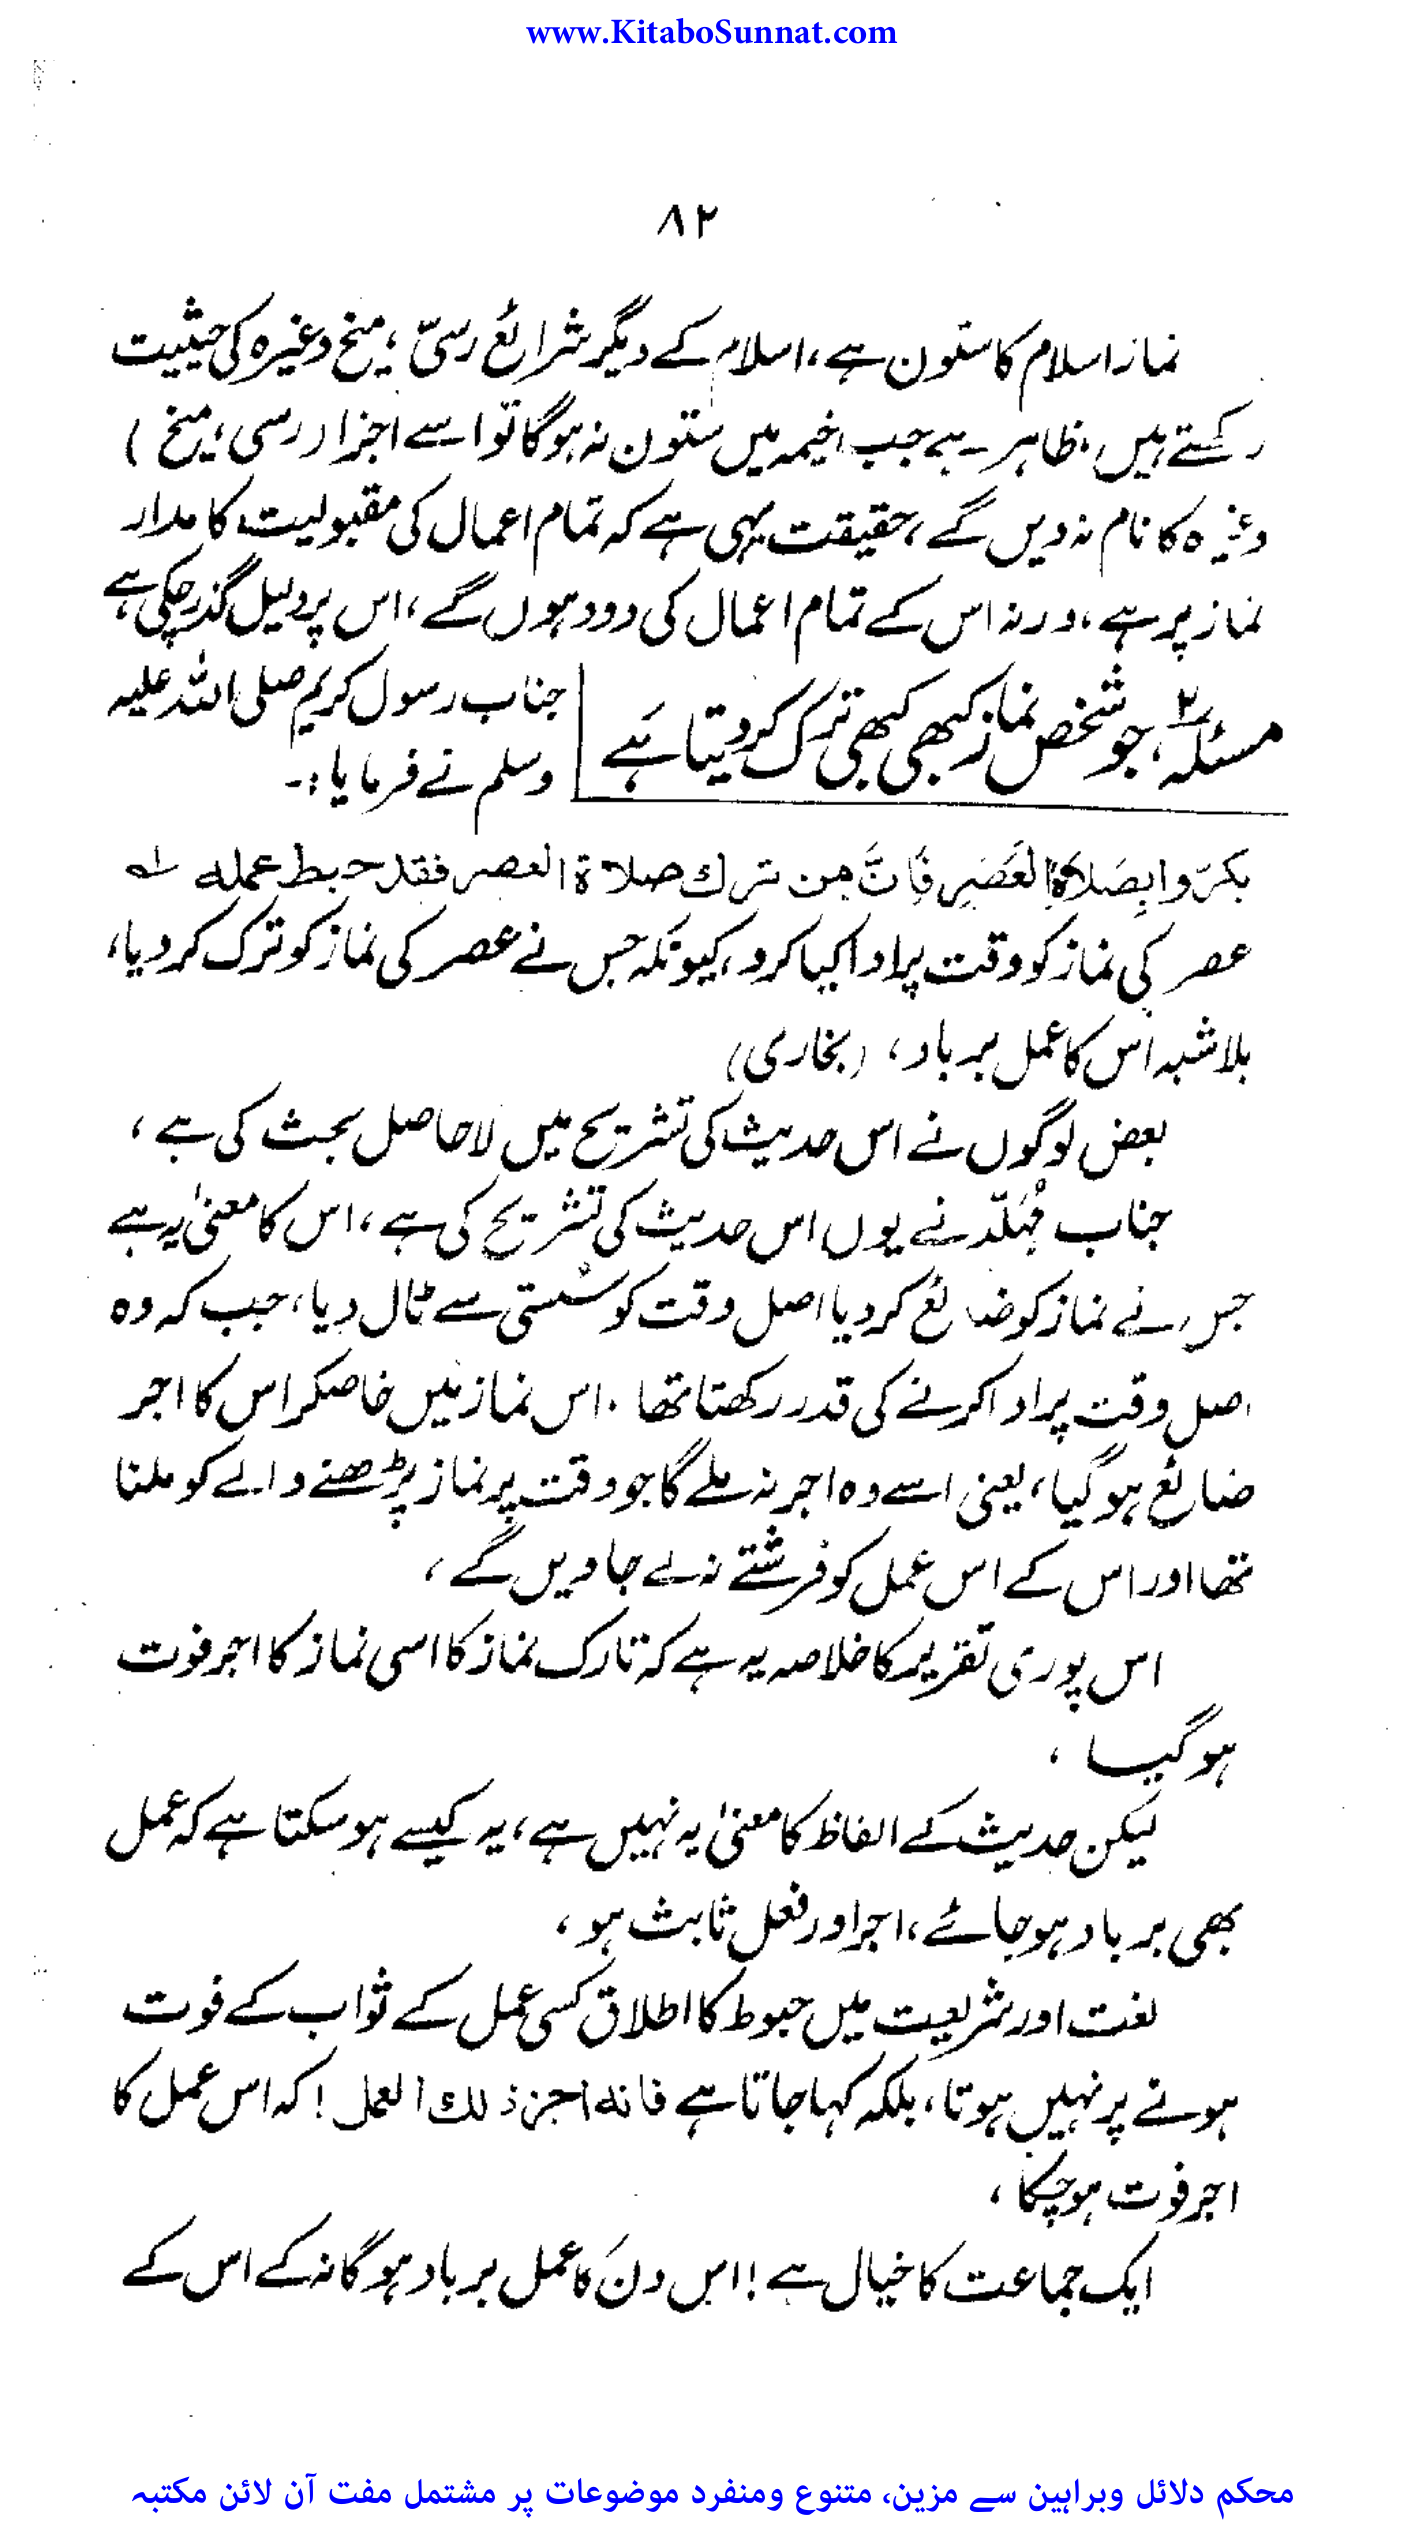 www.KitaboSunnat.com
۸۲
نماز اسلام کا ستون ہے، اسلام کے دیگر شرائع رسیّ، میخ وغیرہ کی حیثیت
رکھتے ہیں، ظاہر ہے جب خیمہ میں ستون نہ ہوگا تو اسے اجزار رسی، میخ )
وغیرہ کا نام نہ دیں گے، حقیقت یہی ہے کہ تمام اعمال کی مقبولیت کا مدار
نماز پر ہے، ورنہ اس کے تمام اعمال کی دود ہوں گے، اس پر دلیل گذر چکی ہے
مسئلہ ۲، جو شخص نماز کبھی کبھی ترک کر دیتا ہَے
جناب رسول کریم صلی اللہ علیہ
وسلم نے فرمایا :۔
بکرّوا بِصَلاۃِ الْعَصْرِ فَاِنَّ مِن ترك صلاۃ العصر فقد حبط عمله لہ
عصر کی نماز کو وقت پر ادا کیا کرو، کیونکہ جس نے عصر کی نماز کو ترک کر دیا،
بلاشبہ اُس کا عمل برباد، (بخاری)
بعض لوگوں نے اس حدیث کی تشریح میں لاحاصل بحث کی ہے،
جناب مُہلّد نے یوں اس حدیث کی تشریح کی ہے، اس کا معنیٰ یہ ہے
جس نے نماز کو ضائع کر دیا اصل وقت کو سُستی سے ٹال دیا، جب کہ وہ
اصل وقت پر ادا کرنے کی قدر رکھتا تھا. اس نماز میں خاصکر اس کا اجر
ضائع ہوگیا، یعنی اسے وہ اجر نہ ملے گا جو وقت پر نماز پڑھنے والے کو ملنا
تھا اور اس کے اس عمل کو فرشتے نہ لے جاویں گے،
اس پوری تقریر کا خلاصہ یہ ہے کہ تارک نماز کا اسی نماز کا اجر فوت
ہوگیا،
لیکن حدیث کے الفاظ کا معنیٰ یہ نہیں ہے، یہ کیسے ہو سکتا ہے کہ عمل
بھی برباد ہو جائے، اجر اور فعل ثابت ہو،
لغت اور شریعت میں حبوط کا اطلاق کسی عمل کے ثواب کے فوت
ہونے پر نہیں ہوتا، بلکہ کہا جاتا ہے فانه اجر ذلك العمل ! کہ اس عمل کا
اجر فوت ہو چکا،
ایک جماعت کا خیال ہے! اس دن کا عمل برباد ہوگا نہ کے اس کے
محکم دلائل وبراہین سے مزین، متنوع ومنفرد موضوعات پر مشتمل مفت آن لائن مکتبہ